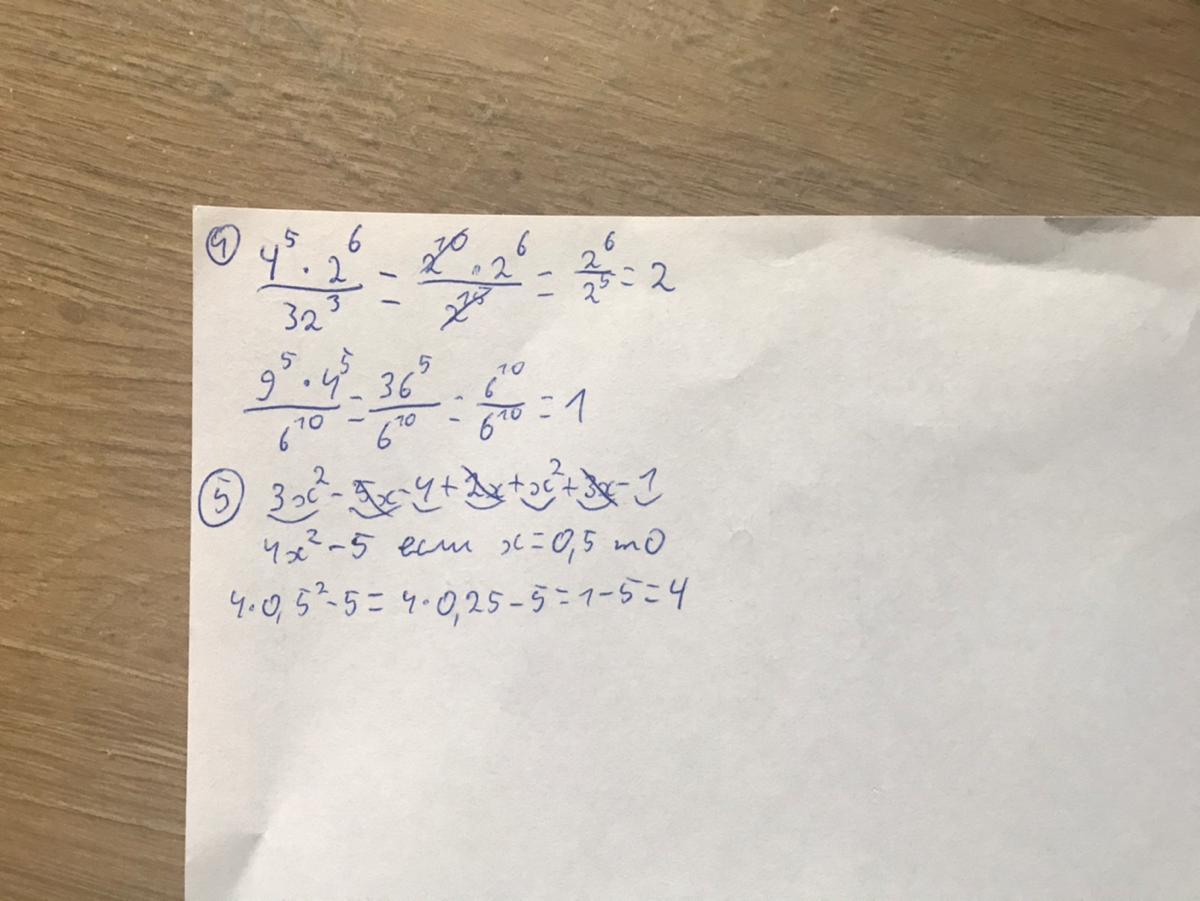 ④ 4⁵ · 2⁶ / 32³ = 2¹⁰ · 2⁶ / 2¹⁵ = 2⁶ / 2⁵ = 2
9⁵ · 4⁵ / 6¹⁰ = 36⁵ / 6¹⁰ = 6¹⁰ / 6¹⁰ = 1
⑤ 3x² - 5x - 4 + 2x + x² + 3x - 1
4x² - 5 если x = 0,5 то
4 · 0,5² - 5 = 4 · 0,25 - 5 = 1 - 5 = 4